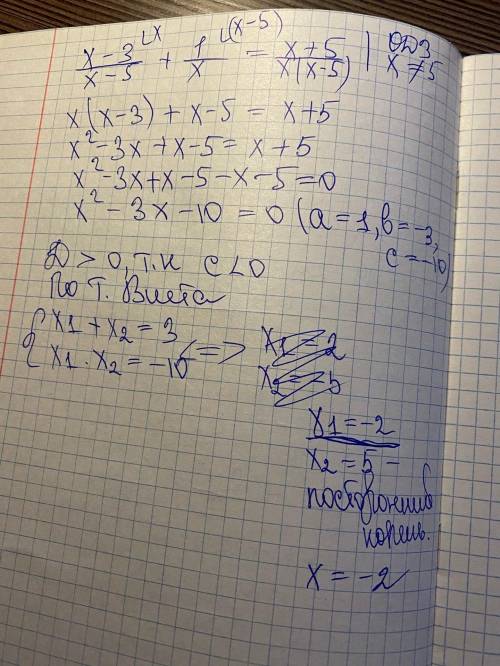 (x-3)/(x-5) ⌊x + 1/x ⌊(x-5) = (x+5)/(x(x-5)) | ОДЗ x ≠ 5
x(x-3) + x-5 = x+5
x² - 3x + x - 5 = x + 5
x² - 3x + x - 5 - x - 5 = 0
x² - 3x - 10 = 0 (a = 1, b = -3, c = -10)
D > 0, т.к c < 0
По т. Виета
{ x1 + x2 = 3
x1 · x2 = -10 <=>
x1 = 2
x2 = -5
x1 = -2
x2 = 5 -
посторонний
корень.
x = -2